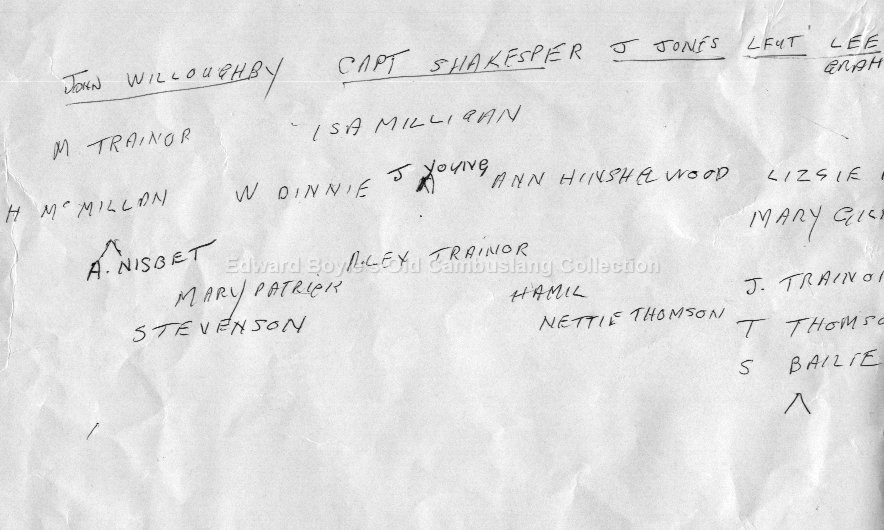 JOHN WILLOUGHBY CAPT SHAKESPER J JONES LEUT LEE
GRAH
M TRAINOR ISA MILLIGAN
H McMILLAN W DINNIE J YOUNG ANN HINSHELWOOD LIZSIE
MARY
A. NISBET ALEX TRAINOR
Edward Boyle's Old Cambuslang Collection
MARY PATRICK HAMIL J. TRAINO
STEVENSON NETTIE THOMSON T THOMSO
S BAILIE